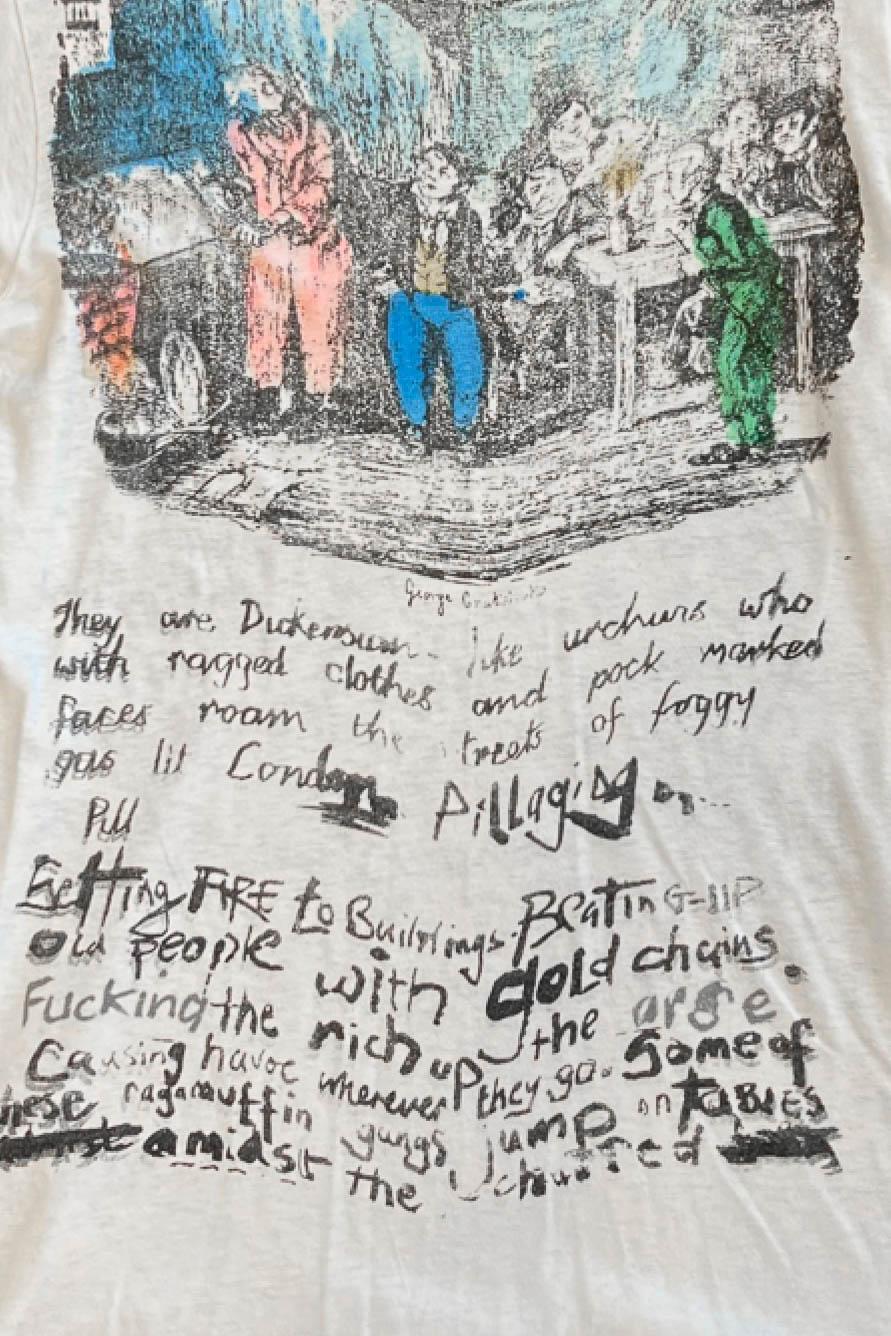 George
They are Dickensian-like urchins who
with ragged clothes and pock marked
faces roam the treets of foggy
gas lit London Pillaging
Pill
Setting FIRE to Buildings. BeatinG-UP
old people with gold chains.
Fucking the rich up the arse.
Causing havoc wherever they go. Some of
these ragamuffin gangs jump on tables
amidst the